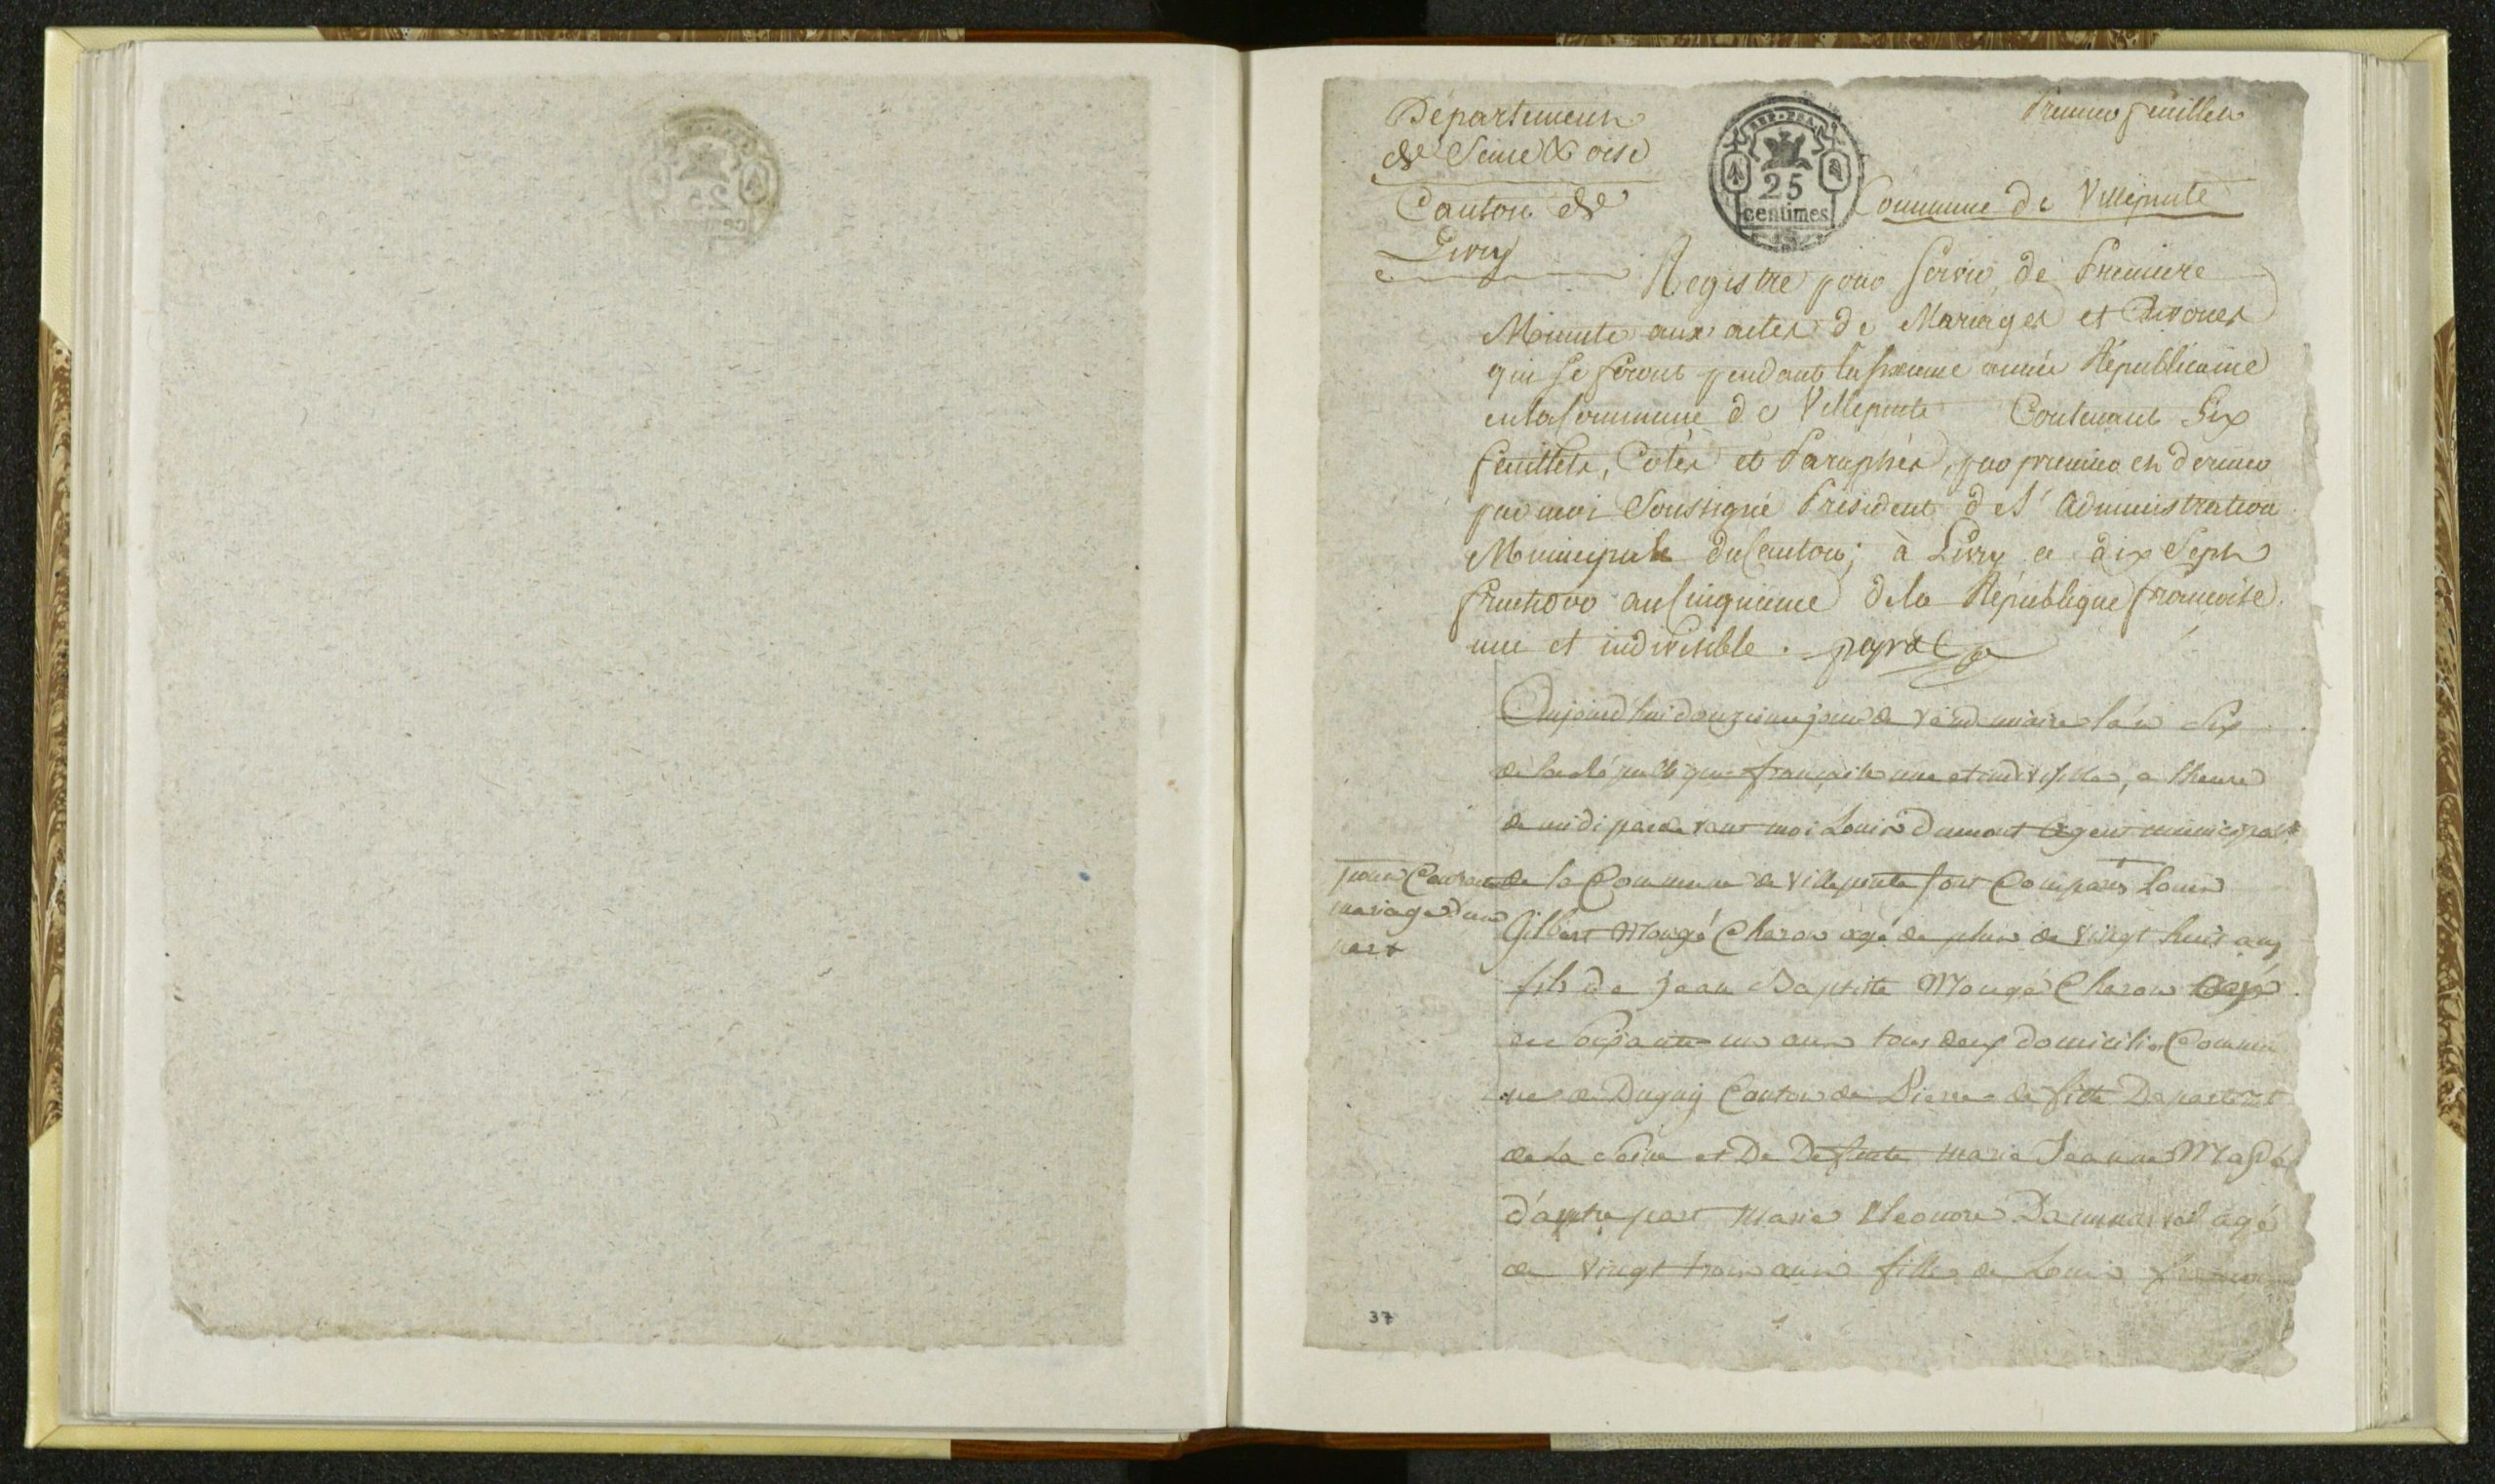 Département
de Seine & oise
Canton de
Livry
Premier feuillet
REP. FRA.
25
centimes
Commune de Villepinte
Registre pour servir de Premiere
Minute aux actes de Mariages et Divorces
qui se feront pendant la sixieme année Républicaine
en la Commune de Villepinte Contenant Six
feuillets, Cotés et Paraphés, par premier et dernier
par moi Soussigné Président de l'Administration
Municipale du Canton; à Livry ce dix Sept
fructidor an Cinquieme de la République françoise
une et indivisible.
Aujourd'hui douzieme jour de vendemiaire l'an Six
de la République française une et indivisible, a l'heure
de midi pardevant moi Louis Dumont Agent municipal
de la Commune de Villepinte sont Comparus Louis
pour Contracter
mariage d'une
part
Gilbert Mougé Charon agé de plus de vingt huit ans
fils de Jean Baptiste Mougé Charon agé
de Soixante un ans tous deux domiciliés Commu
ne de Dugny Canton de Pierre fitte Departemt
de la Seine et De Defunte Marie Jeanne
d'autre part Marie Eleonore agé
de vingt trois ans fille de Louis
37
1